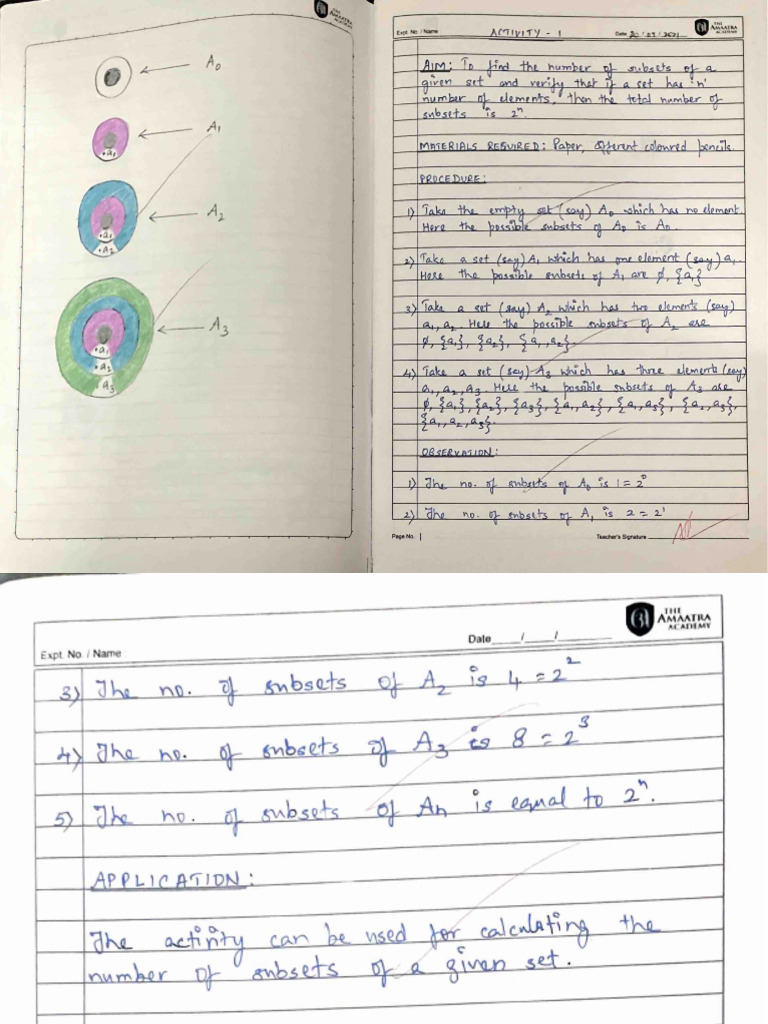 THE
AMAATRA
ACADEMY
A₀
A₁
.a₁
A₂
.a₁
.a₂
A₃
.a₁
.a₂
a₃
Expt. No. / Name ACTIVITY - 1
THE
AMAATRA
ACADEMY
AIM: To find the number of subsets of a
given set and verify that if a set has 'n'
number of elements, then the total number of
subsets is 2ⁿ.
MATERIALS REQUIRED: Paper, different coloured pencils.
PROCEDURE:
1) Take the empty set (say) A₀ which has no element.
Here the possible subsets of A₀ is A₀.
2) Take a set (say) A₁ which has one element (say) a₁.
Here the possible subsets of A₁ are ∅, {a₁}
3) Take a set (say) A₂ which has two elements (say)
a₁, a₂. Here the possible subsets of A₂ are
∅, {a₁}, {a₂}, {a₁, a₂}.
4) Take a set (say) A₃ which has three elements (say)
a₁, a₂, a₃. Here the possible subsets of A₃ are
∅, {a₁}, {a₂}, {a₃}, {a₁, a₂}, {a₁, a₃}, {a₂, a₃},
{a₁, a₂, a₃}.
OBSERVATION:
1) The no. of subsets of A₀ is 1 = 2⁰
2) The no. of subsets of A₁ is 2 = 2¹
Page No. 1 Teacher's Signature
THE
AMAATRA
ACADEMY
Expt. No. / Name Date / /
3) The no. of subsets of A₂ is 4 = 2²
4) The no. of subsets of A₃ is 8 = 2³
5) The no. of subsets of An is equal to 2ⁿ.
APPLICATION:
The activity can be used for calculating the
number of subsets of a given set.